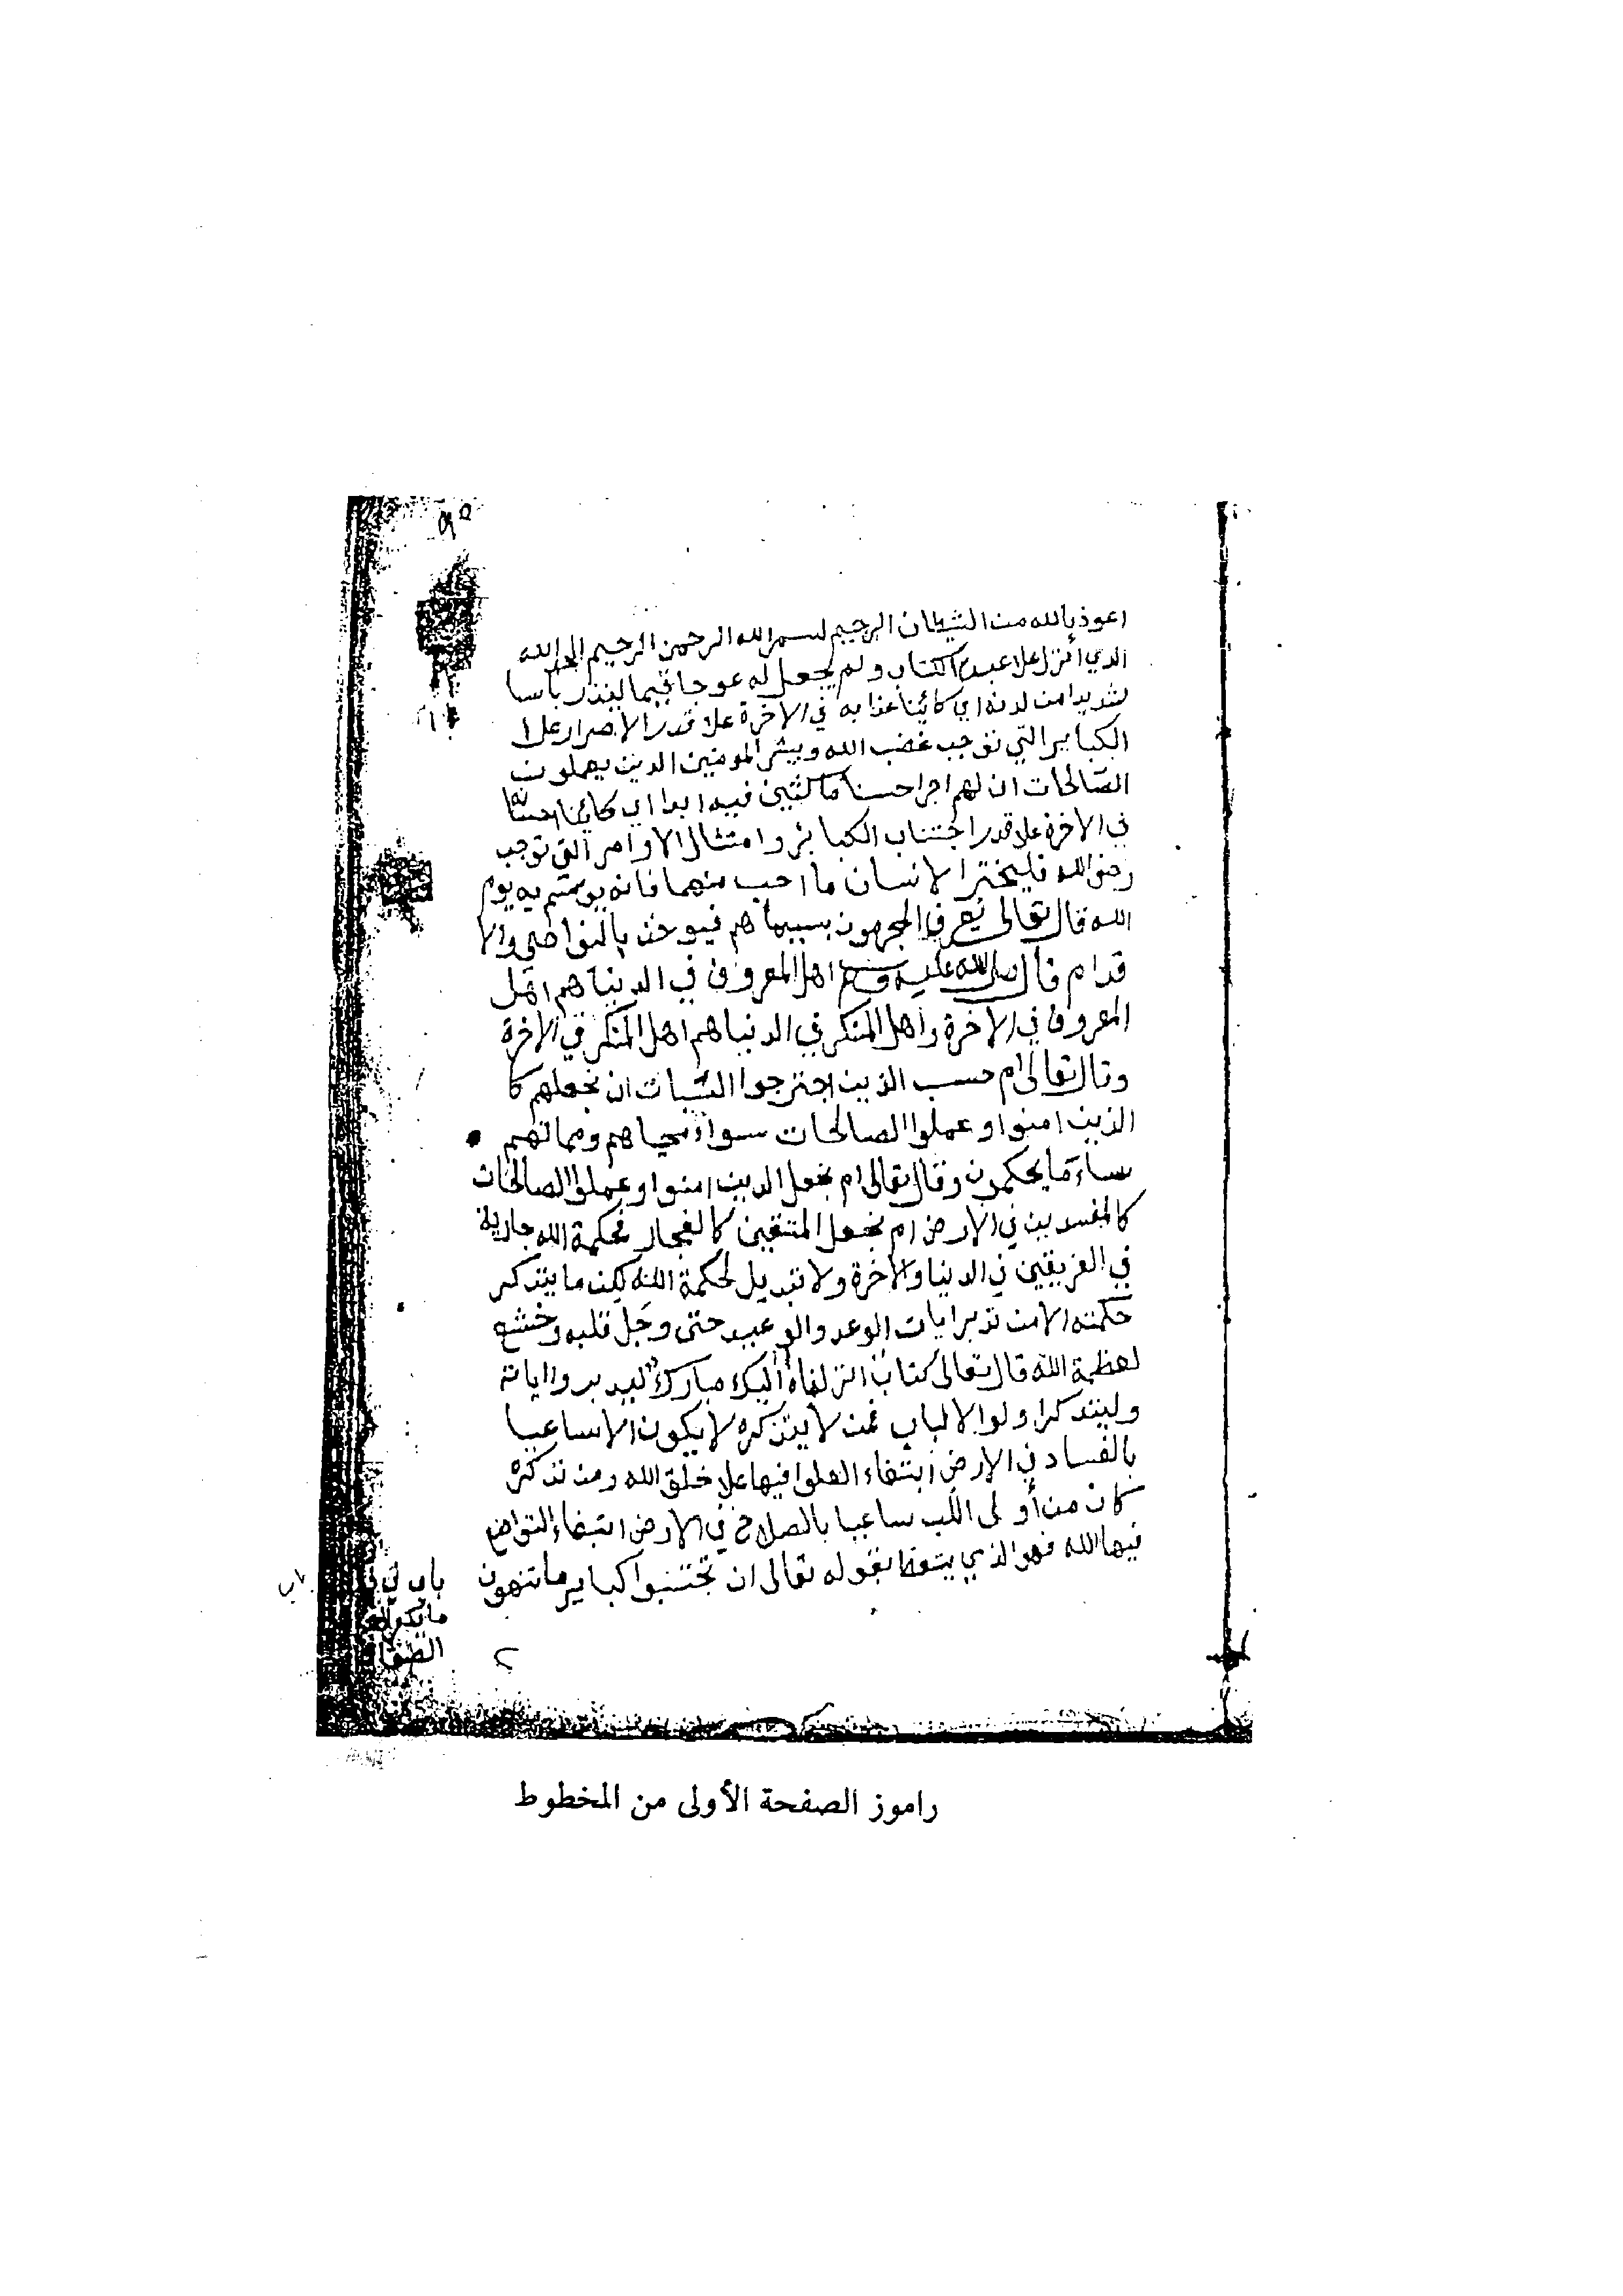 اعوذ بالله من الشيطان الرجيم بسم الله الرحمن الرحيم الحمد لله
الذي أنزل علا عبده الكتاب ولم يجعل له عوجا قيما لينذر بأسا
شديدا من لدنه اي كائنا عذابه في الاخرة علا قدر الاصرار علا
الكباير التي توجب غضب الله ويبشر المومنين الذين يعملون
الصالحات ان لهم اجرا حسنا ماكثين فيه ابدا اي كائنا
في الاخرة علا قدر اجتناب الكبائر وامتثال الاوامر التي توجب
رضى الله فليختر الانسان ما احب منهما فانه يوسم به يوم
الله قال تعالى يعرف المجرمون بسيماهم فيوخذ بالنواصي والا
قدام قال صلى الله عليه وسلم اهل المعروف في الدنيا هم اهل
المعروف في الاخرة واهل المنكر في الدنيا هم اهل المنكر في الاخرة
وقال تعالى ام حسب الذين اجترحوا السيات ان نجعلهم كا
الذين امنوا وعملوا الصالحات سواء محياهم ومماتهم
ساء ما يحكمون وقال تعالى ام نجعل الذين امنوا وعملوا الصالحات
كالمفسدين في الارض ام نجعل المتقين كالفجار فحكمة الله جارية
في الفريقين في الدنيا والاخرة ولا تبديل لحكمة الله لكن ما يتذكر
حكمته الا من تدبر ايات الوعد والوعيد حتى وجل قلبه وخشع
لعظمة الله قال تعالى كتاب انزلناه اليك مبارك ليدبروا اياته
وليتذكر اولوا الالباب فمن لا يتذكره لا يكون الا ساعيا
بالفساد في الارض ابتغاء العلو فيها علا خلق الله ومن تذكره
كان من أولى اللب ساعيا بالصلاح في الارض ابتغاء التواضع
فيها لله فهو الذي يتعظ بقوله تعالى ان تجتنبوا كباير ما تنهون
راموز الصفحة الأولى من المخطوط